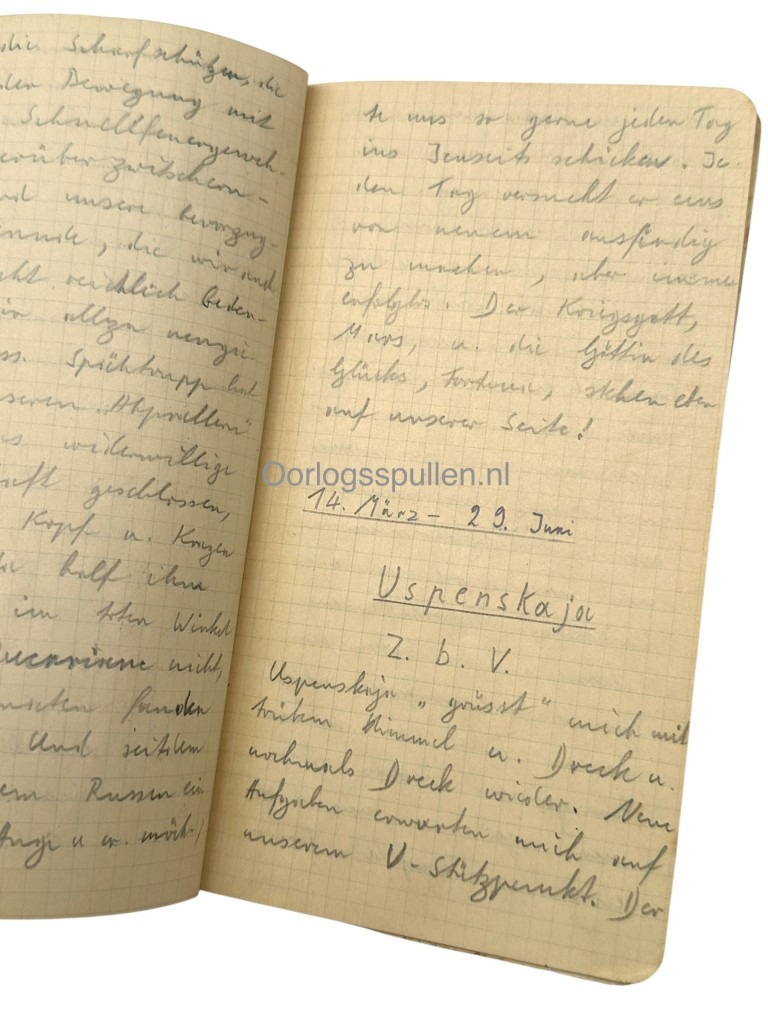 die Scharfschützen, die
der Bewegung mit
Schnellfeuergeweh-
erüber zwitschern -
nd unsere bevorzug-
unde, die wir auch
cht reichlich beden-
in allzu neugie-
ss. Spähtrupp hat
nseren "Abprallern"
s widerwillige
aft geschlossen,
Kopf u. Kragen
da half ihm
im toten Winkel
nicht,
fanden
Und seitdem
em Russen ein
Auge u er. möch-
te uns so gerne jeden Tag
ins Jenseits schicken. Je-
den Tag versucht er uns
von neuem ausfindig
zu machen, aber immer
erfolglos. Der Kriegsgott,
Mars, u. die Göttin des
Glücks, Fortuna, stehen eben
auf unserer Seite!
Oorlogsspullen.nl
14. März - 29. Juni
Uspenskaja
Z. b. V.
Uspenskaja "grüsst" mich mit
trübem Himmel u. Dreck u.
nochmals Dreck wieder. Neue
Aufgaben erwarten mich auf
unserem V-Stützpunkt. Der